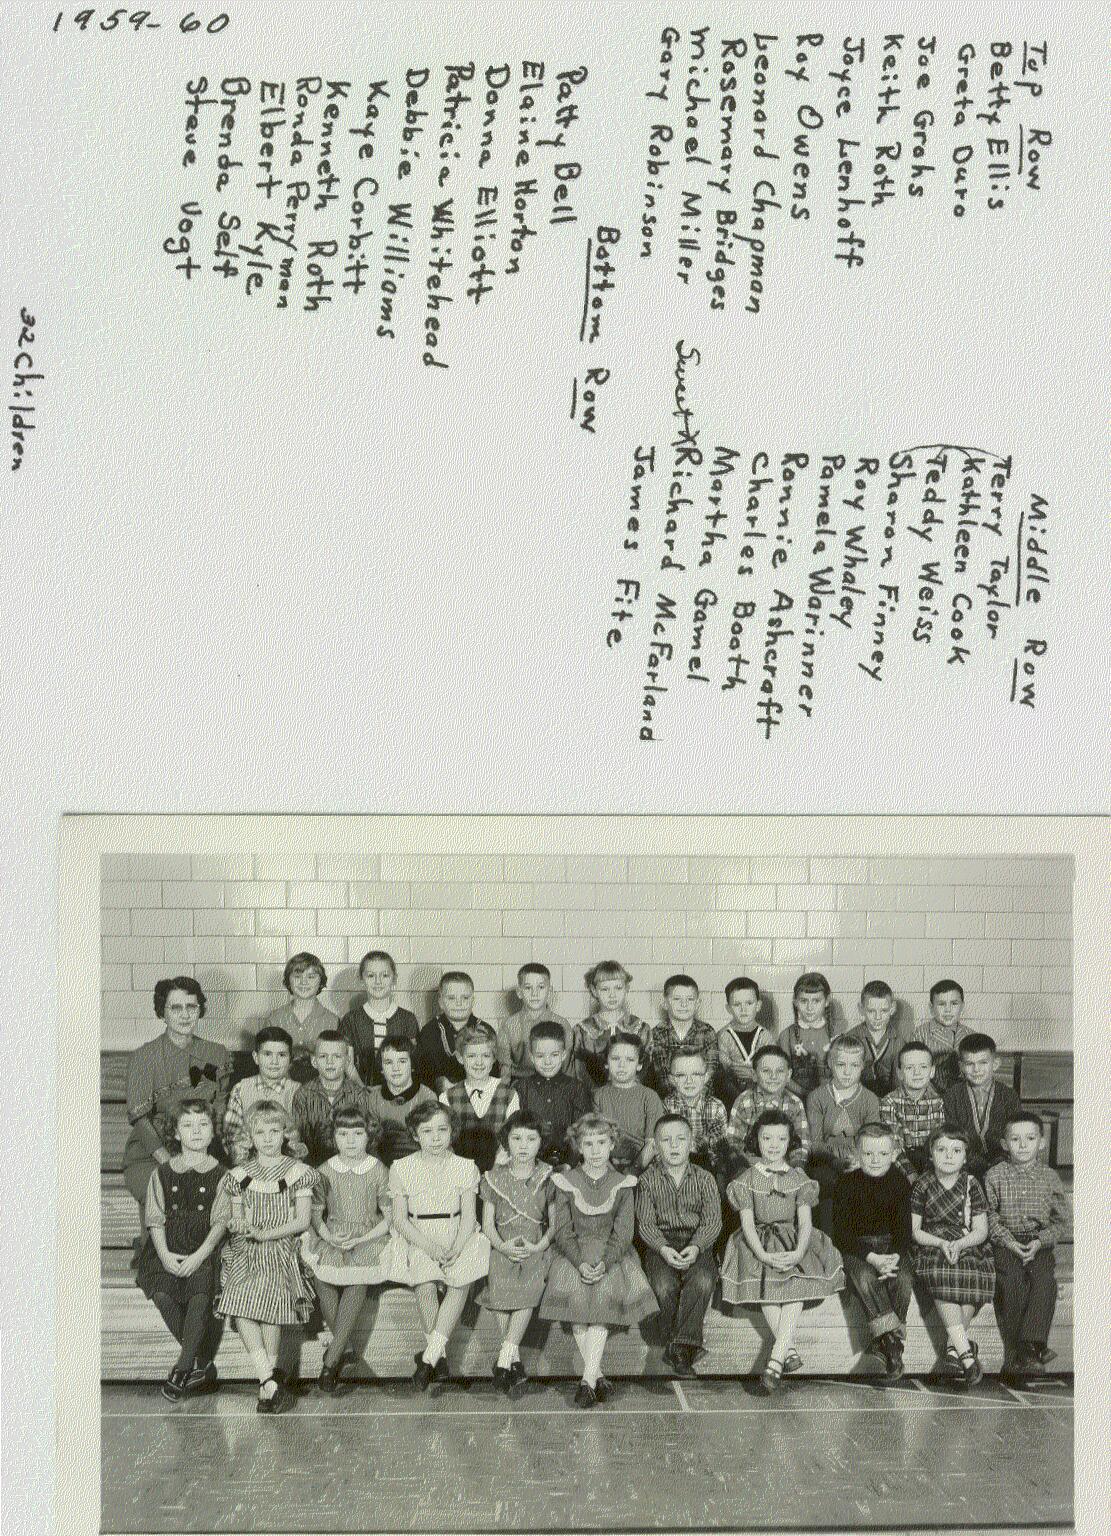 1959-60
Top Row
Betty Ellis
Greta Duro
Joe Grohs
Keith Roth
Joyce Lenhoff
Roy Owens
Leonard Chapman
Rosemary Bridges
Michael Miller
Gary Robinson
Middle Row
Terry Taylor
Kathleen Cook
Teddy Weiss
Sharon Finney
Roy Whaley
Pamela Warinner
Ronnie Ashcraft
Charles Booth
Martha Gamel
Sweet X Richard McFarland
James Fite
Bottom Row
Patty Bell
Elaine Horton
Donna Elliott
Patricia Whitehead
Debbie Williams
Kaye Corbitt
Kenneth Roth
Ronda Perryman
Elbert Kyle
Brenda Self
Steve Vogt
32 Children